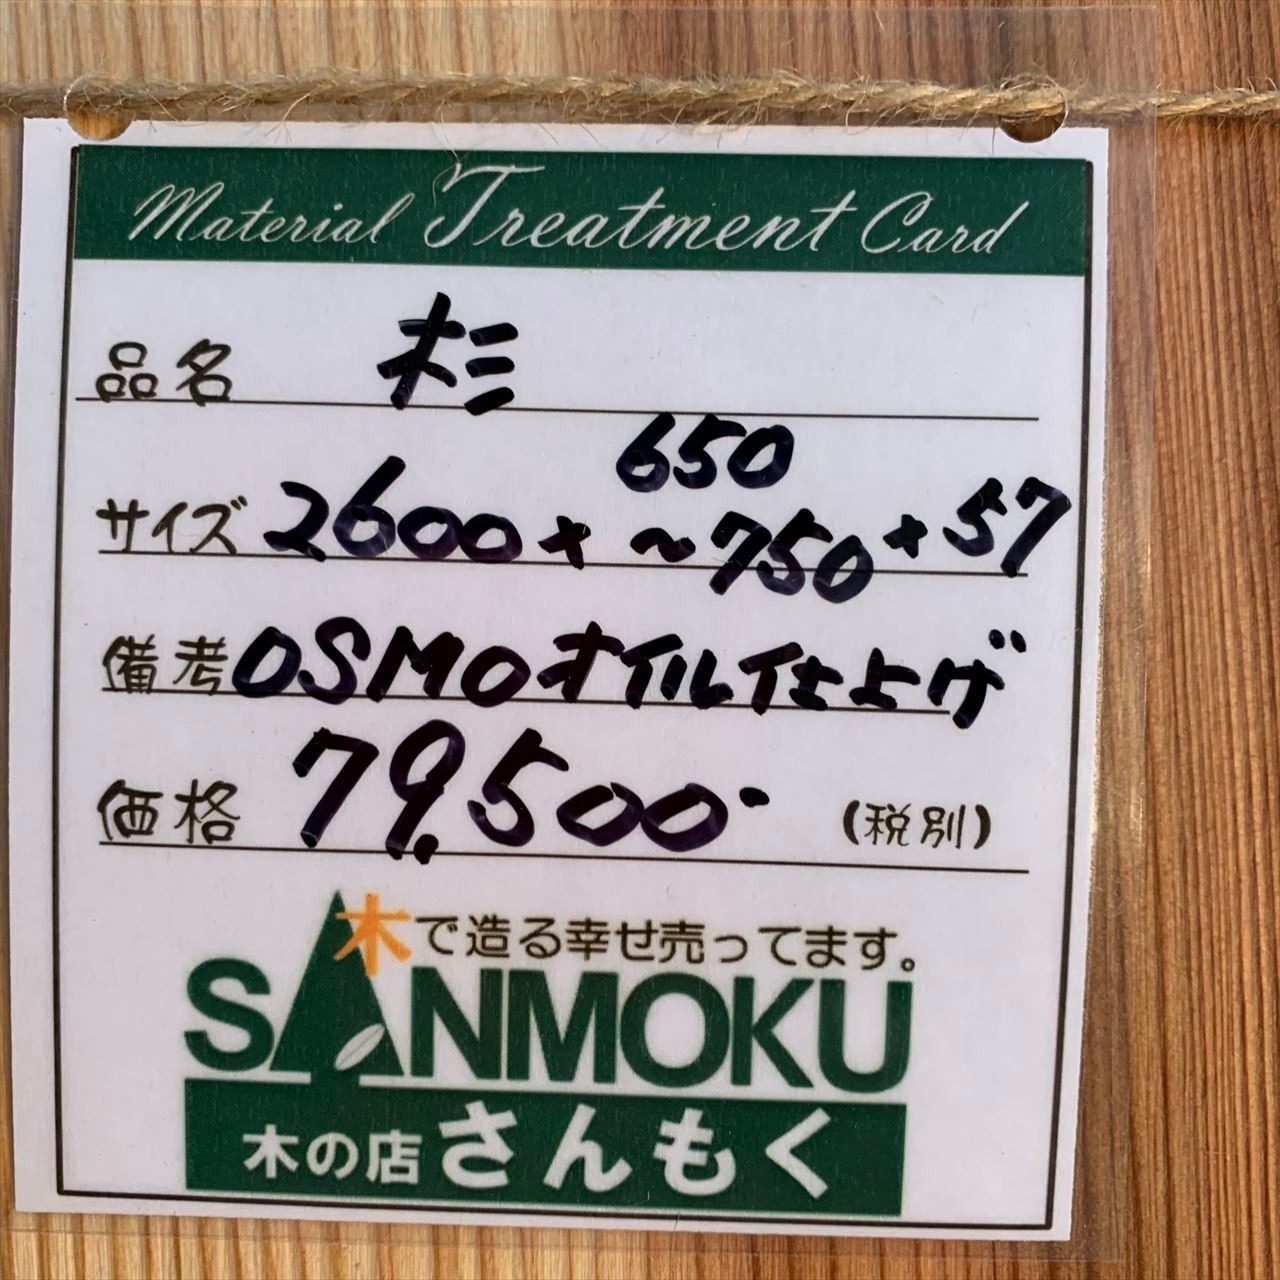 Material Treatment Card
品名 杉
サイズ 2600×650～750×57
備考 OSMOオイル仕上げ
価格 79,500- (税別)
木で造る幸せ売ってます。
SANMOKU
木の店さんもく